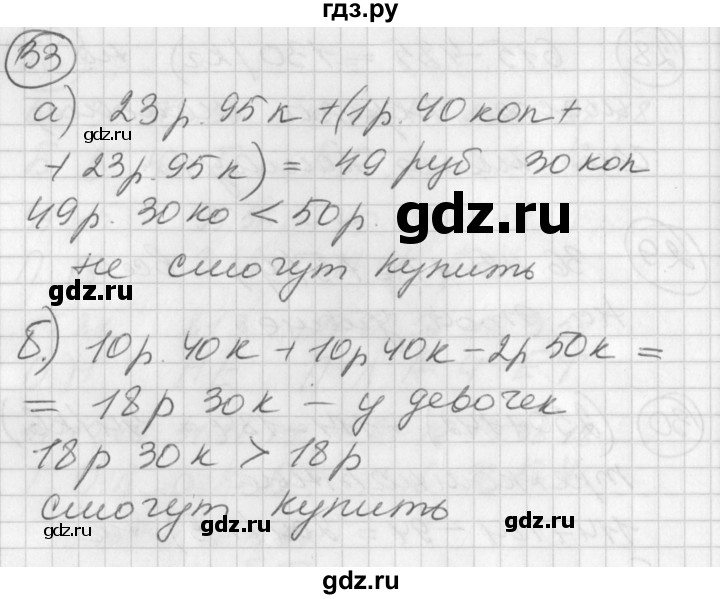 гдз.ру
33
а) 23 р. 95 к + (1 р. 40 коп +
+ 23 р. 95 к) = 49 руб 30 коп
49 р. 30 ко < 50 р.
не смогут купить
б.) 10 р. 40 к + 10 р 40 к – 2 р 50 к =
= 18 р 30 к – у девочек
18 р 30 к > 18 р
смогут купить
gdz.ru
gdz.ru
gdz.ru
gdz.ru
gdz.ru
gdz.ru
gdz.ru
gdz.ru